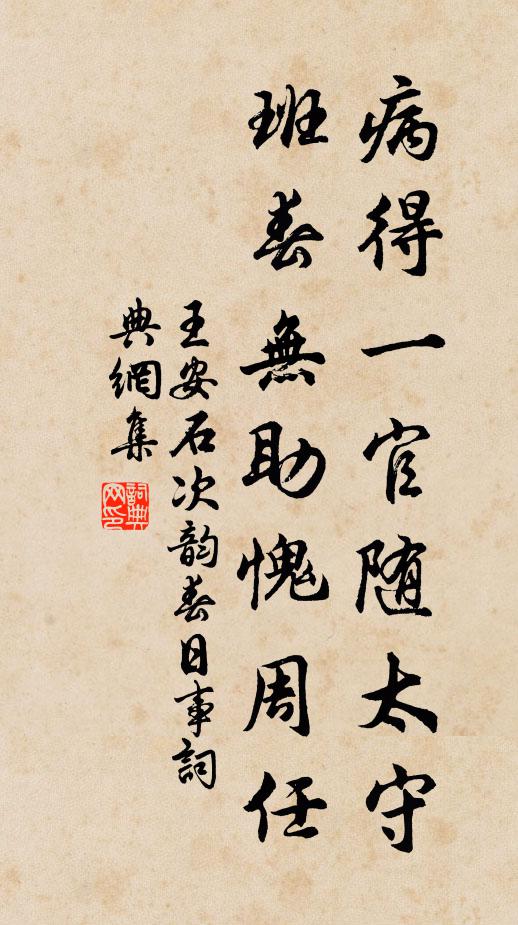 病得一官随太守
班春無助愧周任
王安石次韵春日事詞
典網集
詞典网印